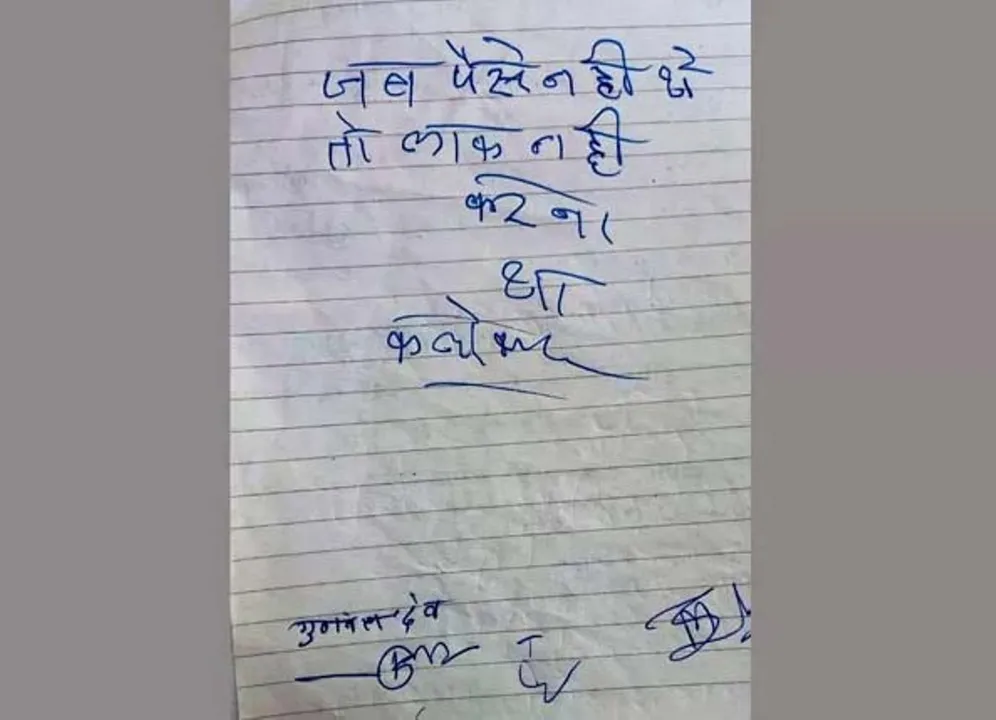 जब पैसे नही थे
तो लाक नही
करना
था
कलेक्टर
देव